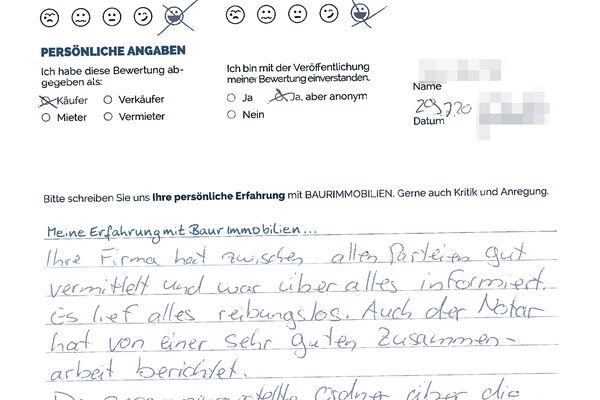 PERSÖNLICHE ANGABEN
Ich habe diese Bewertung ab-
gegeben als:
Käufer Verkäufer
Mieter Vermieter
Ich bin mit der Veröffentlichung
meiner Bewertung einverstanden.
Ja Ja, aber anonym
Nein
Name
Datum
Bitte schreiben Sie uns Ihre persönliche Erfahrung mit BAURIMMOBILIEN. Gerne auch Kritik und Anregung.
Meine Erfahrung mit Baur Immobilien...
Ihre Firma hat zwischen allen Parteien gut
vermittelt und war über alles informiert.
Es lief alles reibungslos. Auch der Notar
hat von einer sehr guten Zusammen-
arbeit berichtet.
Ordner über die